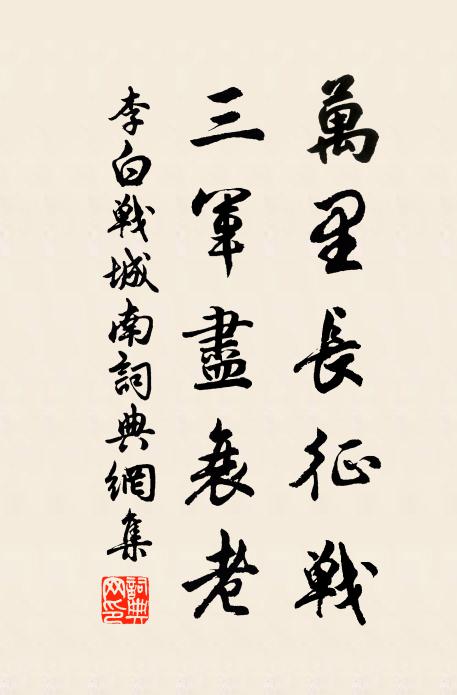 萬里長征戰
三軍盡衰老
李白戰城南詞典網集
詞典網印